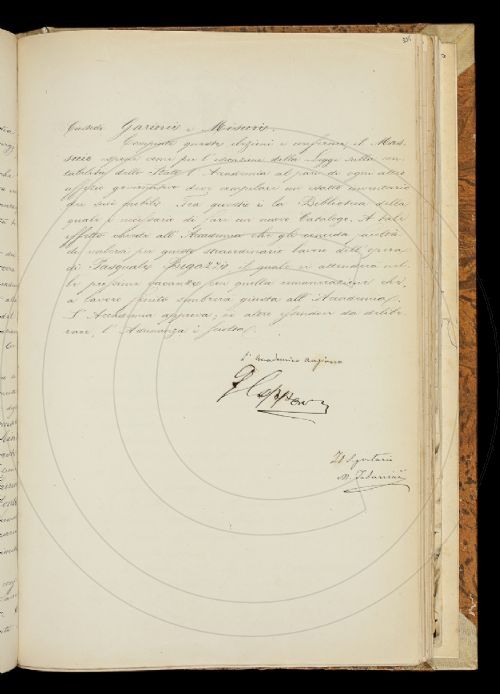 Custode Garinei e Misuri.
Compiute queste elezioni e conferme, il Mas-
siero espone come per l'esecuzione della Legge sulla con-
tabilità dello Stato l'Accademia al pari di ogni altro
uffizio governativo deve compilare un esatto inventario
dei suoi mobili. Tra questi è la Biblioteca della
quale è necessario di fare un nuovo Catalogo. A tale
effetto chiede all'Accademia che gli conceda facoltà
di valersi per questo straordinario lavoro dell'opera
di Pasquale Bigazzi il quale vi attenderà nel-
le prossime vacanze, per quella remunerazione che,
a lavoro finito sembrerà giusta all'Accademia.
L'Accademia approva; e altro non da delibe-
rare, l'Adunanza è sciolta.
L'Accademico Anziano
Il Segretario